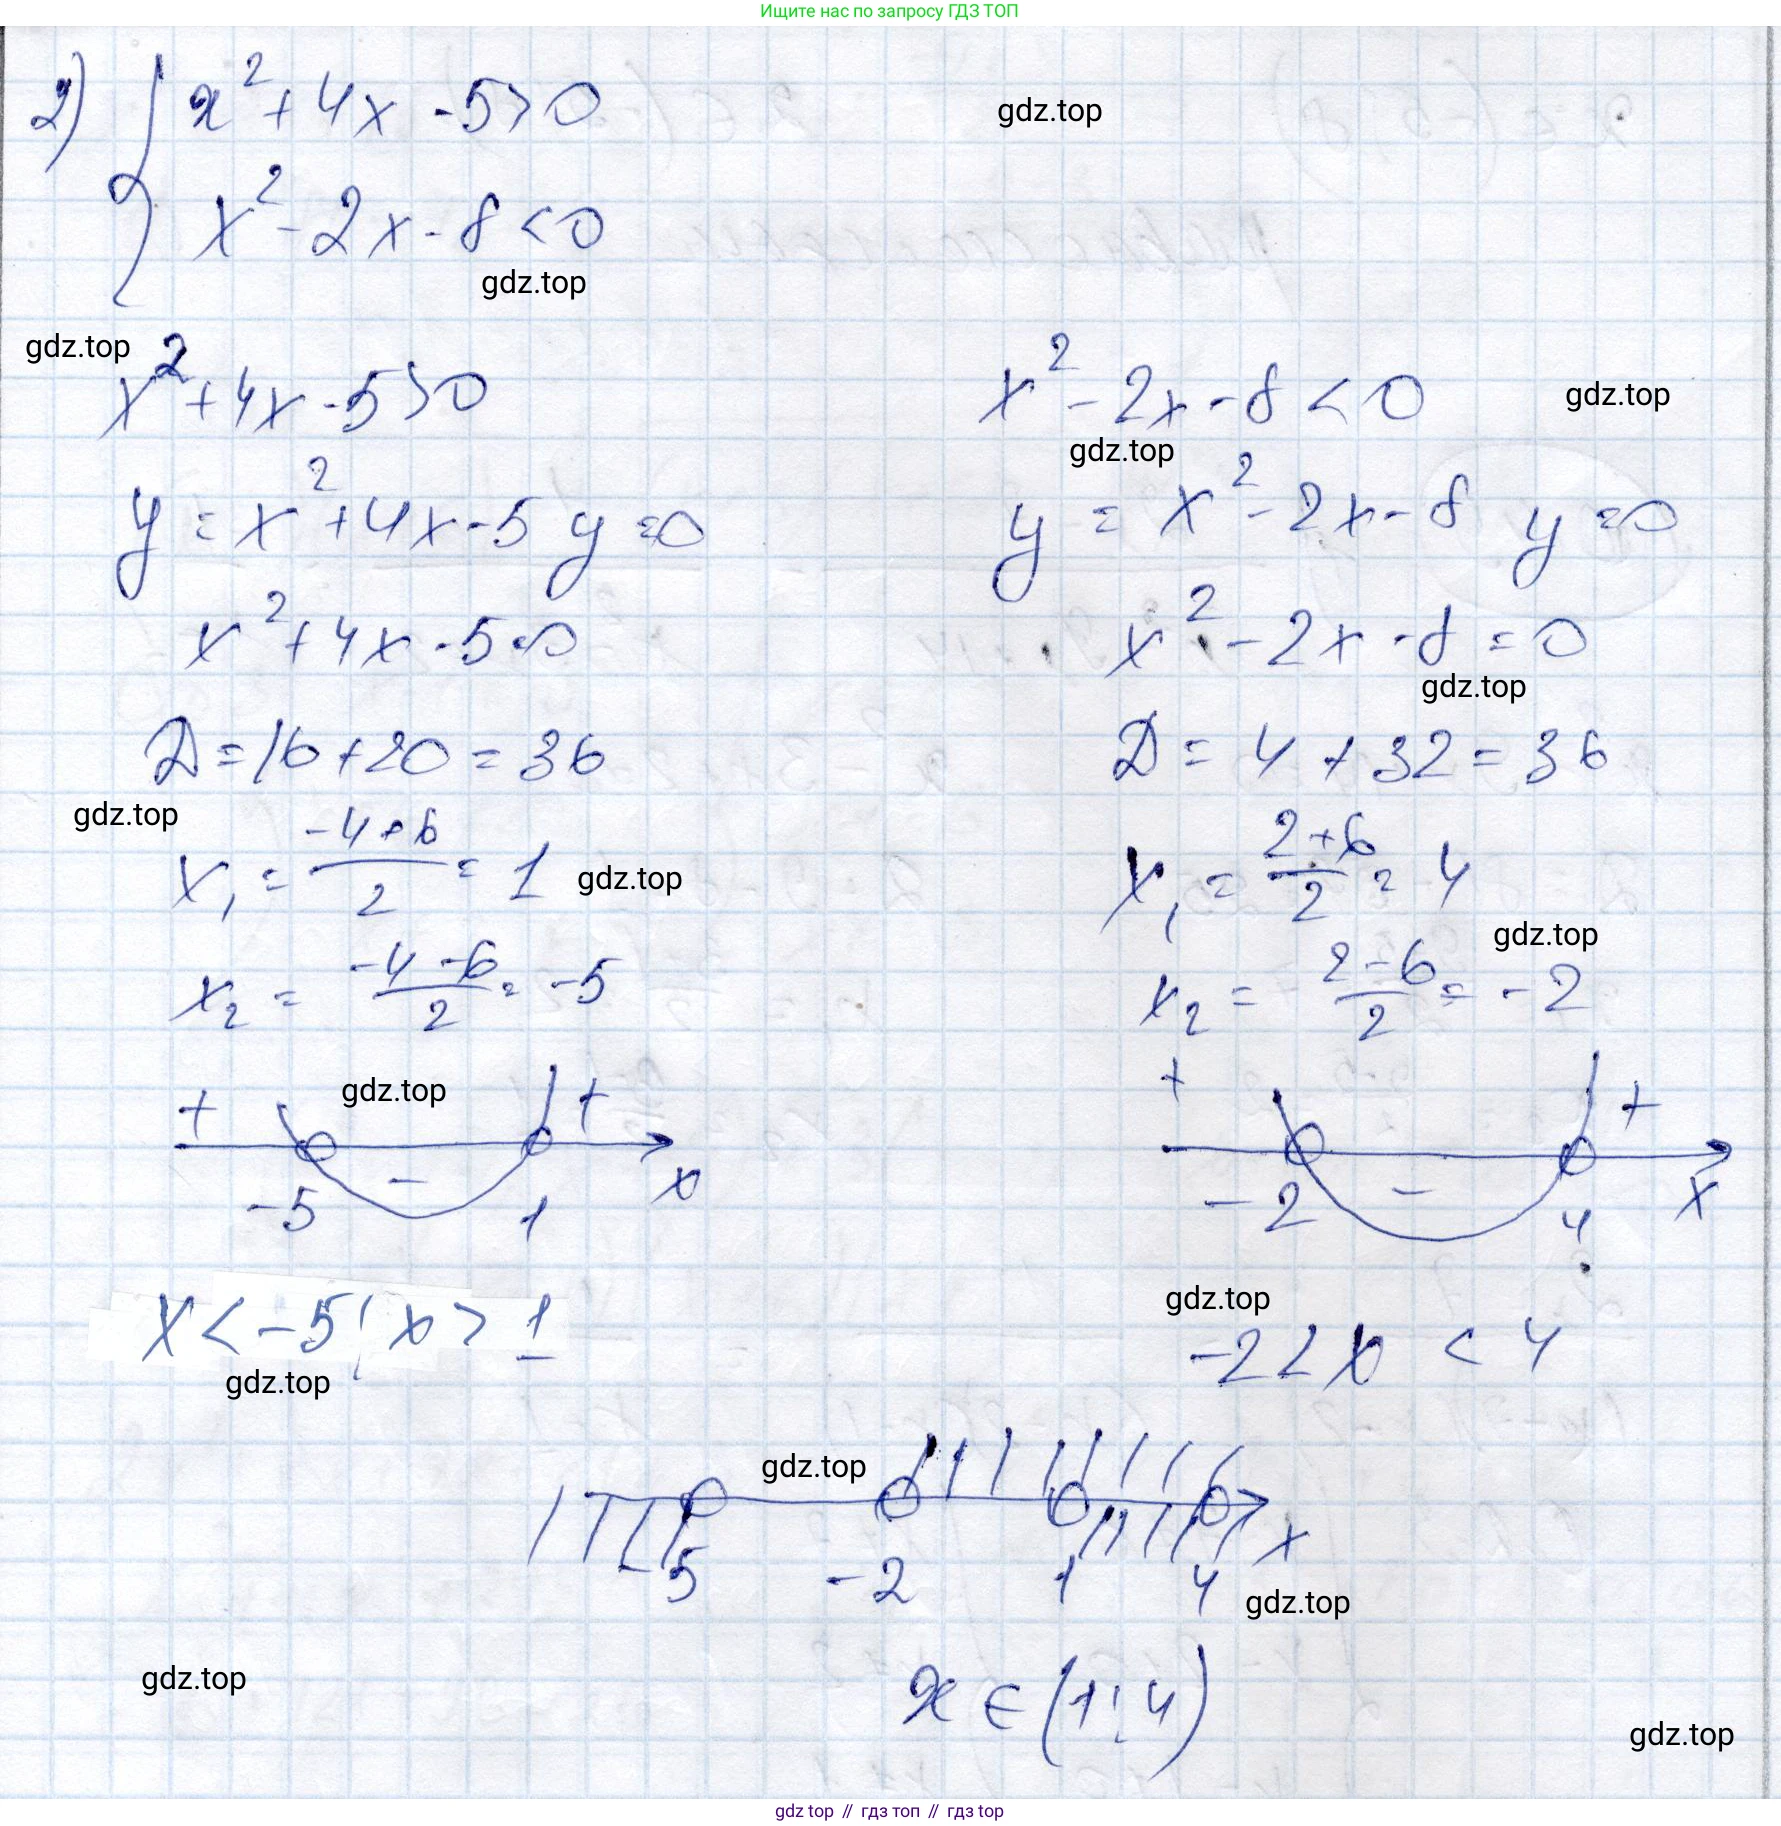 Ищите нас по запросу ГДЗ ТОП
2) { x² + 4x - 5 > 0
gdz.top
x² - 2x - 8 < 0
gdz.top
gdz.top
x² + 4x - 5 > 0
x² - 2x - 8 < 0
gdz.top
gdz.top
y = x² + 4x - 5 y = 0
y = x² - 2x - 8 y = 0
x² + 4x - 5 = 0
x² - 2x - 8 = 0
gdz.top
D = 16 + 20 = 36
D = 4 + 32 = 36
gdz.top
x₁ = (-4+6)/2 = 1
gdz.top
x₁ = (2+6)/2 = 4
gdz.top
x₂ = (-4-6)/2 = -5
x₂ = (2-6)/2 = -2
+ gdz.top +
+ +
- x
- x
-5 1
-2 4
gdz.top
x < -5; x > 1
-2 < x < 4
gdz.top
gdz.top
x
-5 -2 1 4
gdz.top
x ∈ (1; 4)
gdz.top
gdz.top
gdz top // гдз топ // гдз top